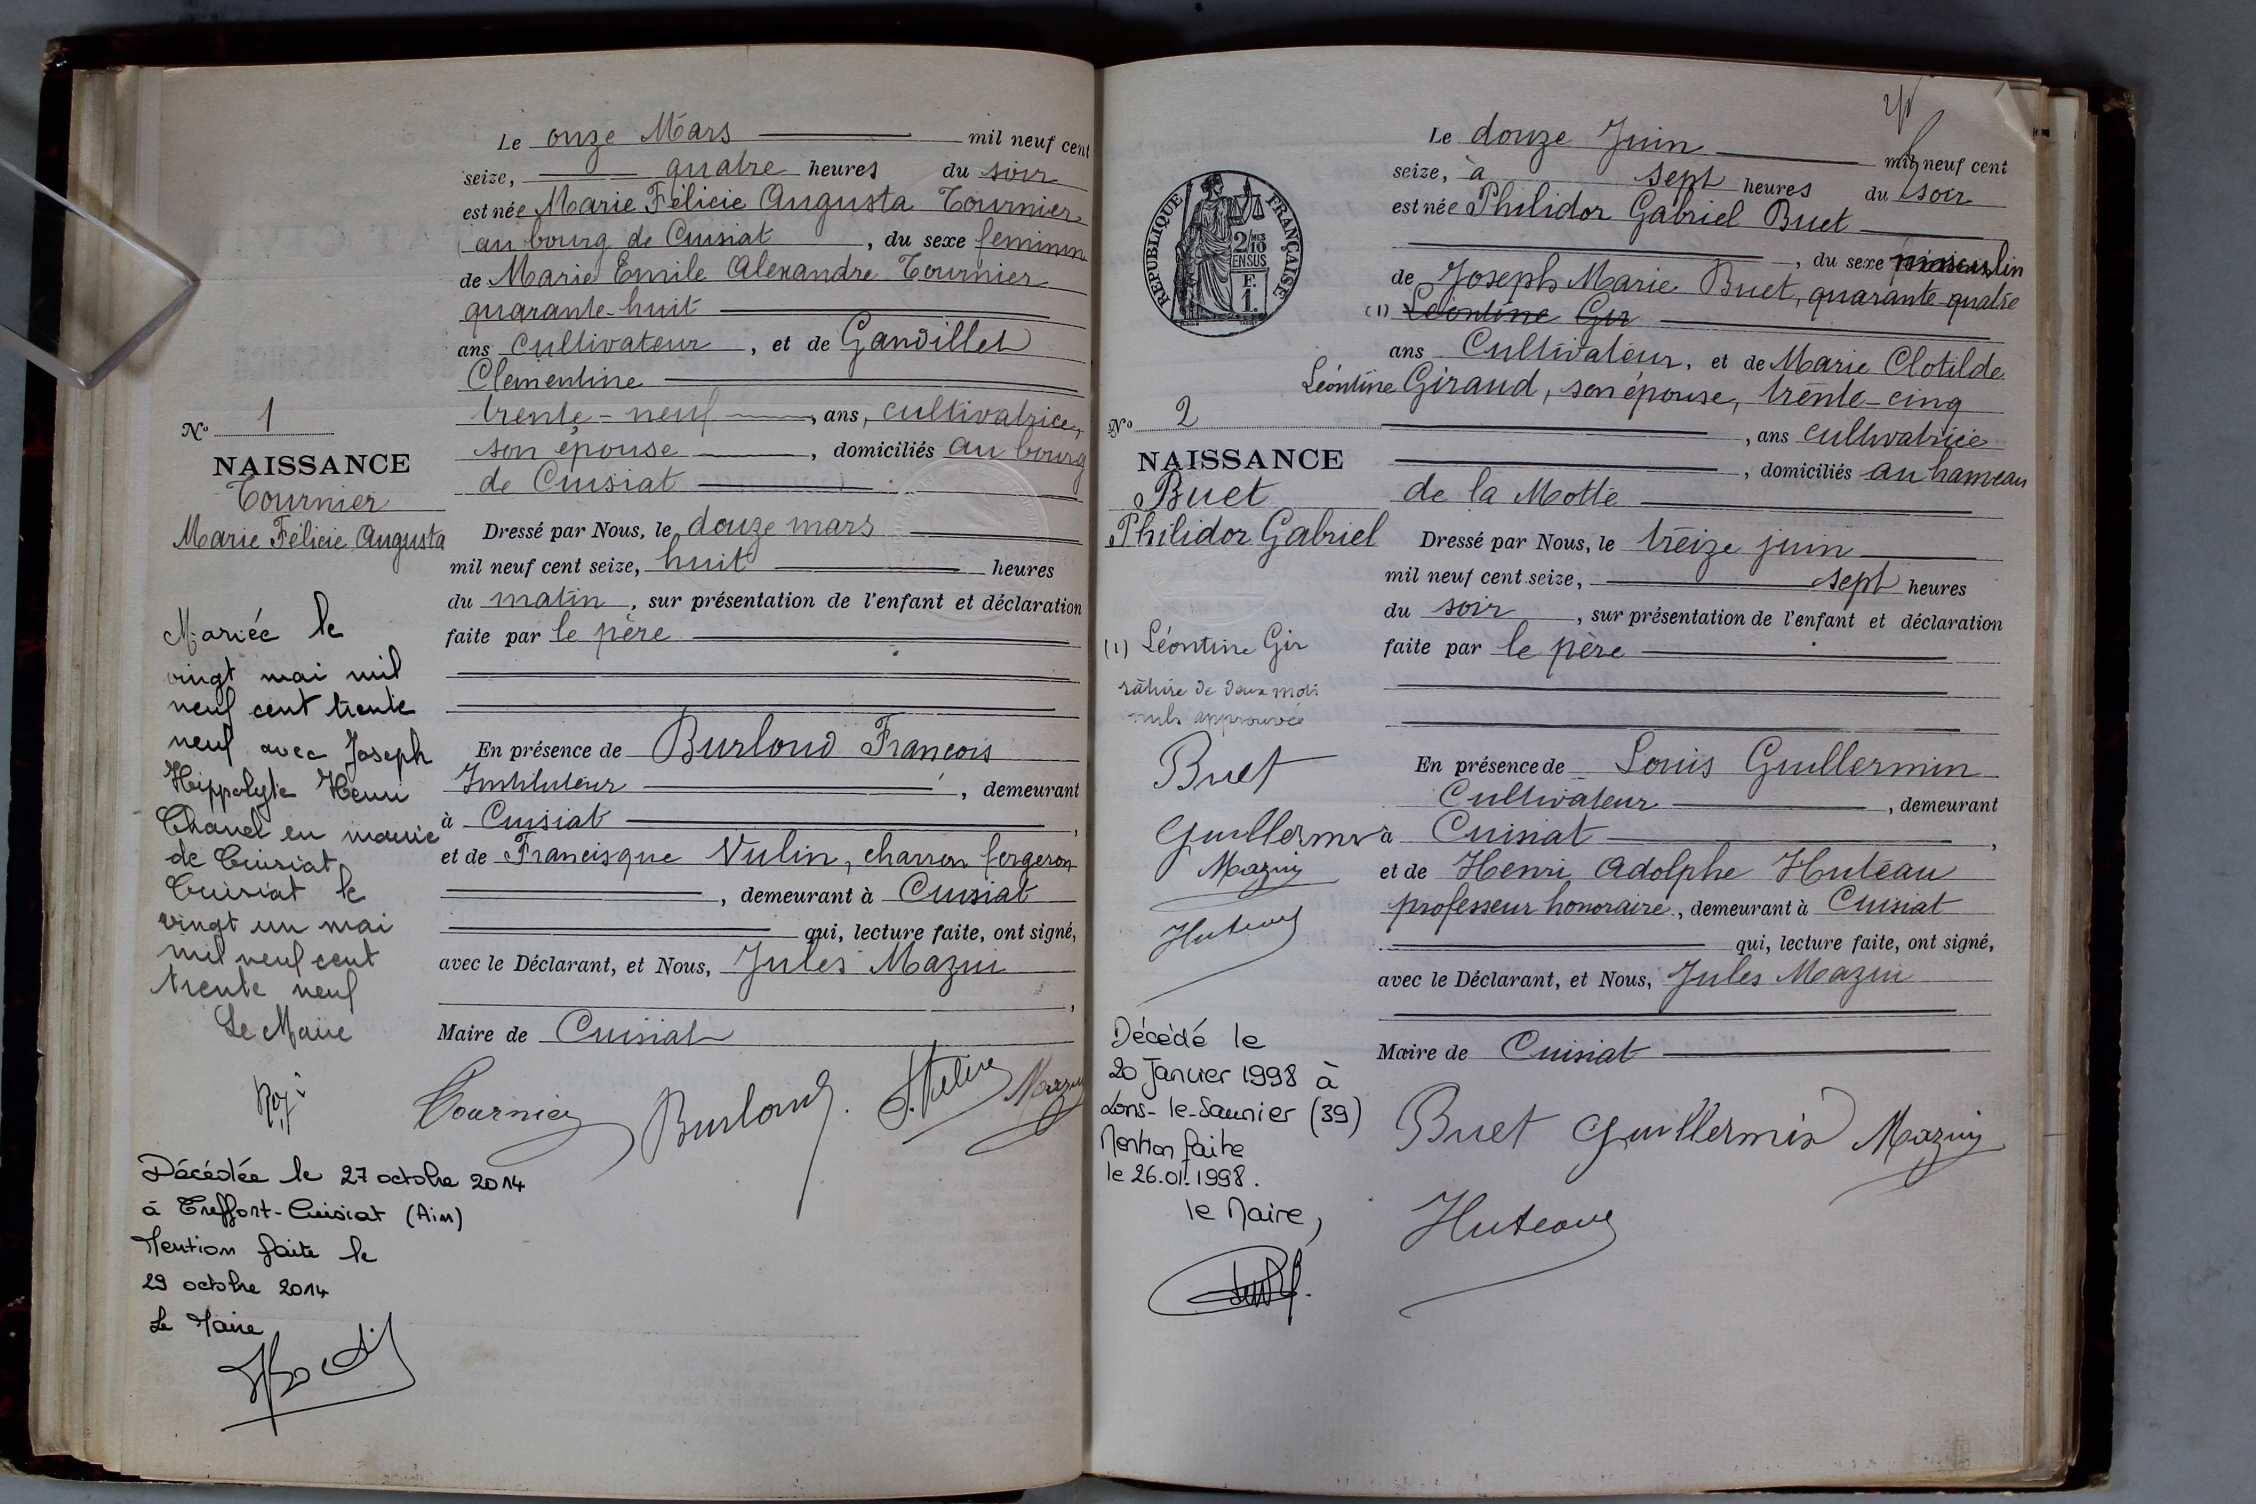 Le onze Mars mil neuf cent
seize, quatre heures du soir
est née Marie Félicie Augusta Tournier
au bourg de Cuisiat, du sexe feminin
de Marie Emile Alexandre Tournier
quarante-huit
ans cultivateur, et de Gavillet
Clementine
trente-neuf, ans, cultivatrice,
son épouse, domiciliés au bourg
de Cuisiat
Nº 1
NAISSANCE
Tournier
Marie Félicie Augusta
Dressé par Nous, le douze mars
mil neuf cent seize, huit heures
du matin, sur présentation de l'enfant et déclaration
faite par le père
En présence de Burloud François
Instituteur, demeurant
à Cuisiat,
et de Francisque Vulin, charron forgeron
, demeurant à Cuisiat
qui, lecture faite, ont signé,
avec le Déclarant, et Nous, Jules Mazui
,
Maire de Cuisiat
Tournier Burloud Mazuy
Mariée le
vingt mai mil
neuf cent trente
neuf avec Joseph
Hippolyte Henri
Chanel en mairie
de Cuisiat
Cuisiat le
vingt un mai
mil neuf cent
trente neuf
Le Maire
Décédée le 27 octobre 2014
à Treffort-Cuisiat (Ain)
Mention faite le
29 octobre 2014
Le Maire
RÉPUBLIQUE FRANÇAISE
2/10
EN SUS
F.
1.
Le douze Juin mil neuf cent
seize, à sept heures du soir
est née Philidor Gabriel Buet
, du sexe masculin
de Joseph Marie Buet, quarante-quatre
(1) Léontine Gir
ans Cultivateur, et de Marie Clotilde
Léontine Giraud, son épouse, trente-cinq
, ans cultivatrice
, domiciliés au hameau
de la Motte
Nº 2
NAISSANCE
Buet
Philidor Gabriel
Dressé par Nous, le treize juin
mil neuf cent seize, sept heures
du soir, sur présentation de l'enfant et déclaration
faite par le père
En présence de Louis Guillermin
Cultivateur, demeurant
à Cuisiat,
et de Henri Adolphe Huteau
professeur honoraire, demeurant à Cuisiat
qui, lecture faite, ont signé,
avec le Déclarant, et Nous, Jules Mazui
Maire de Cuisiat
Buet Guillermin Mazuy
Huteau
(1) Léontine Gir
rature de deux mots
nuls approuvée
Buet
Guillermin
Mazuy
Huteau
Décédé le
20 Janvier 1998 à
Lons-le-Saunier (39)
Mention faite
le 26.01.1998.
le Maire,